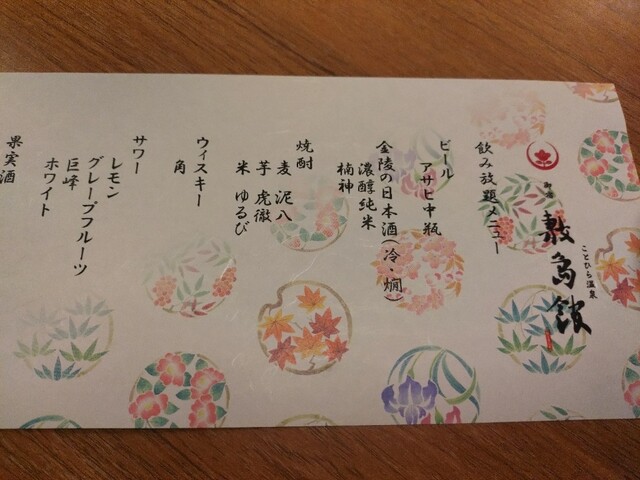 ことひら温泉
御宿 敷島館
飲み放題メニュー
ビール
アサヒ中瓶
金陵の日本酒(冷・燗)
濃醇純米
楠神
焼酎
麦 泥八
芋 虎徹
米 ゆるび
ウィスキー
角
サワー
レモン
グレープフルーツ
巨峰
ホワイト
果実酒